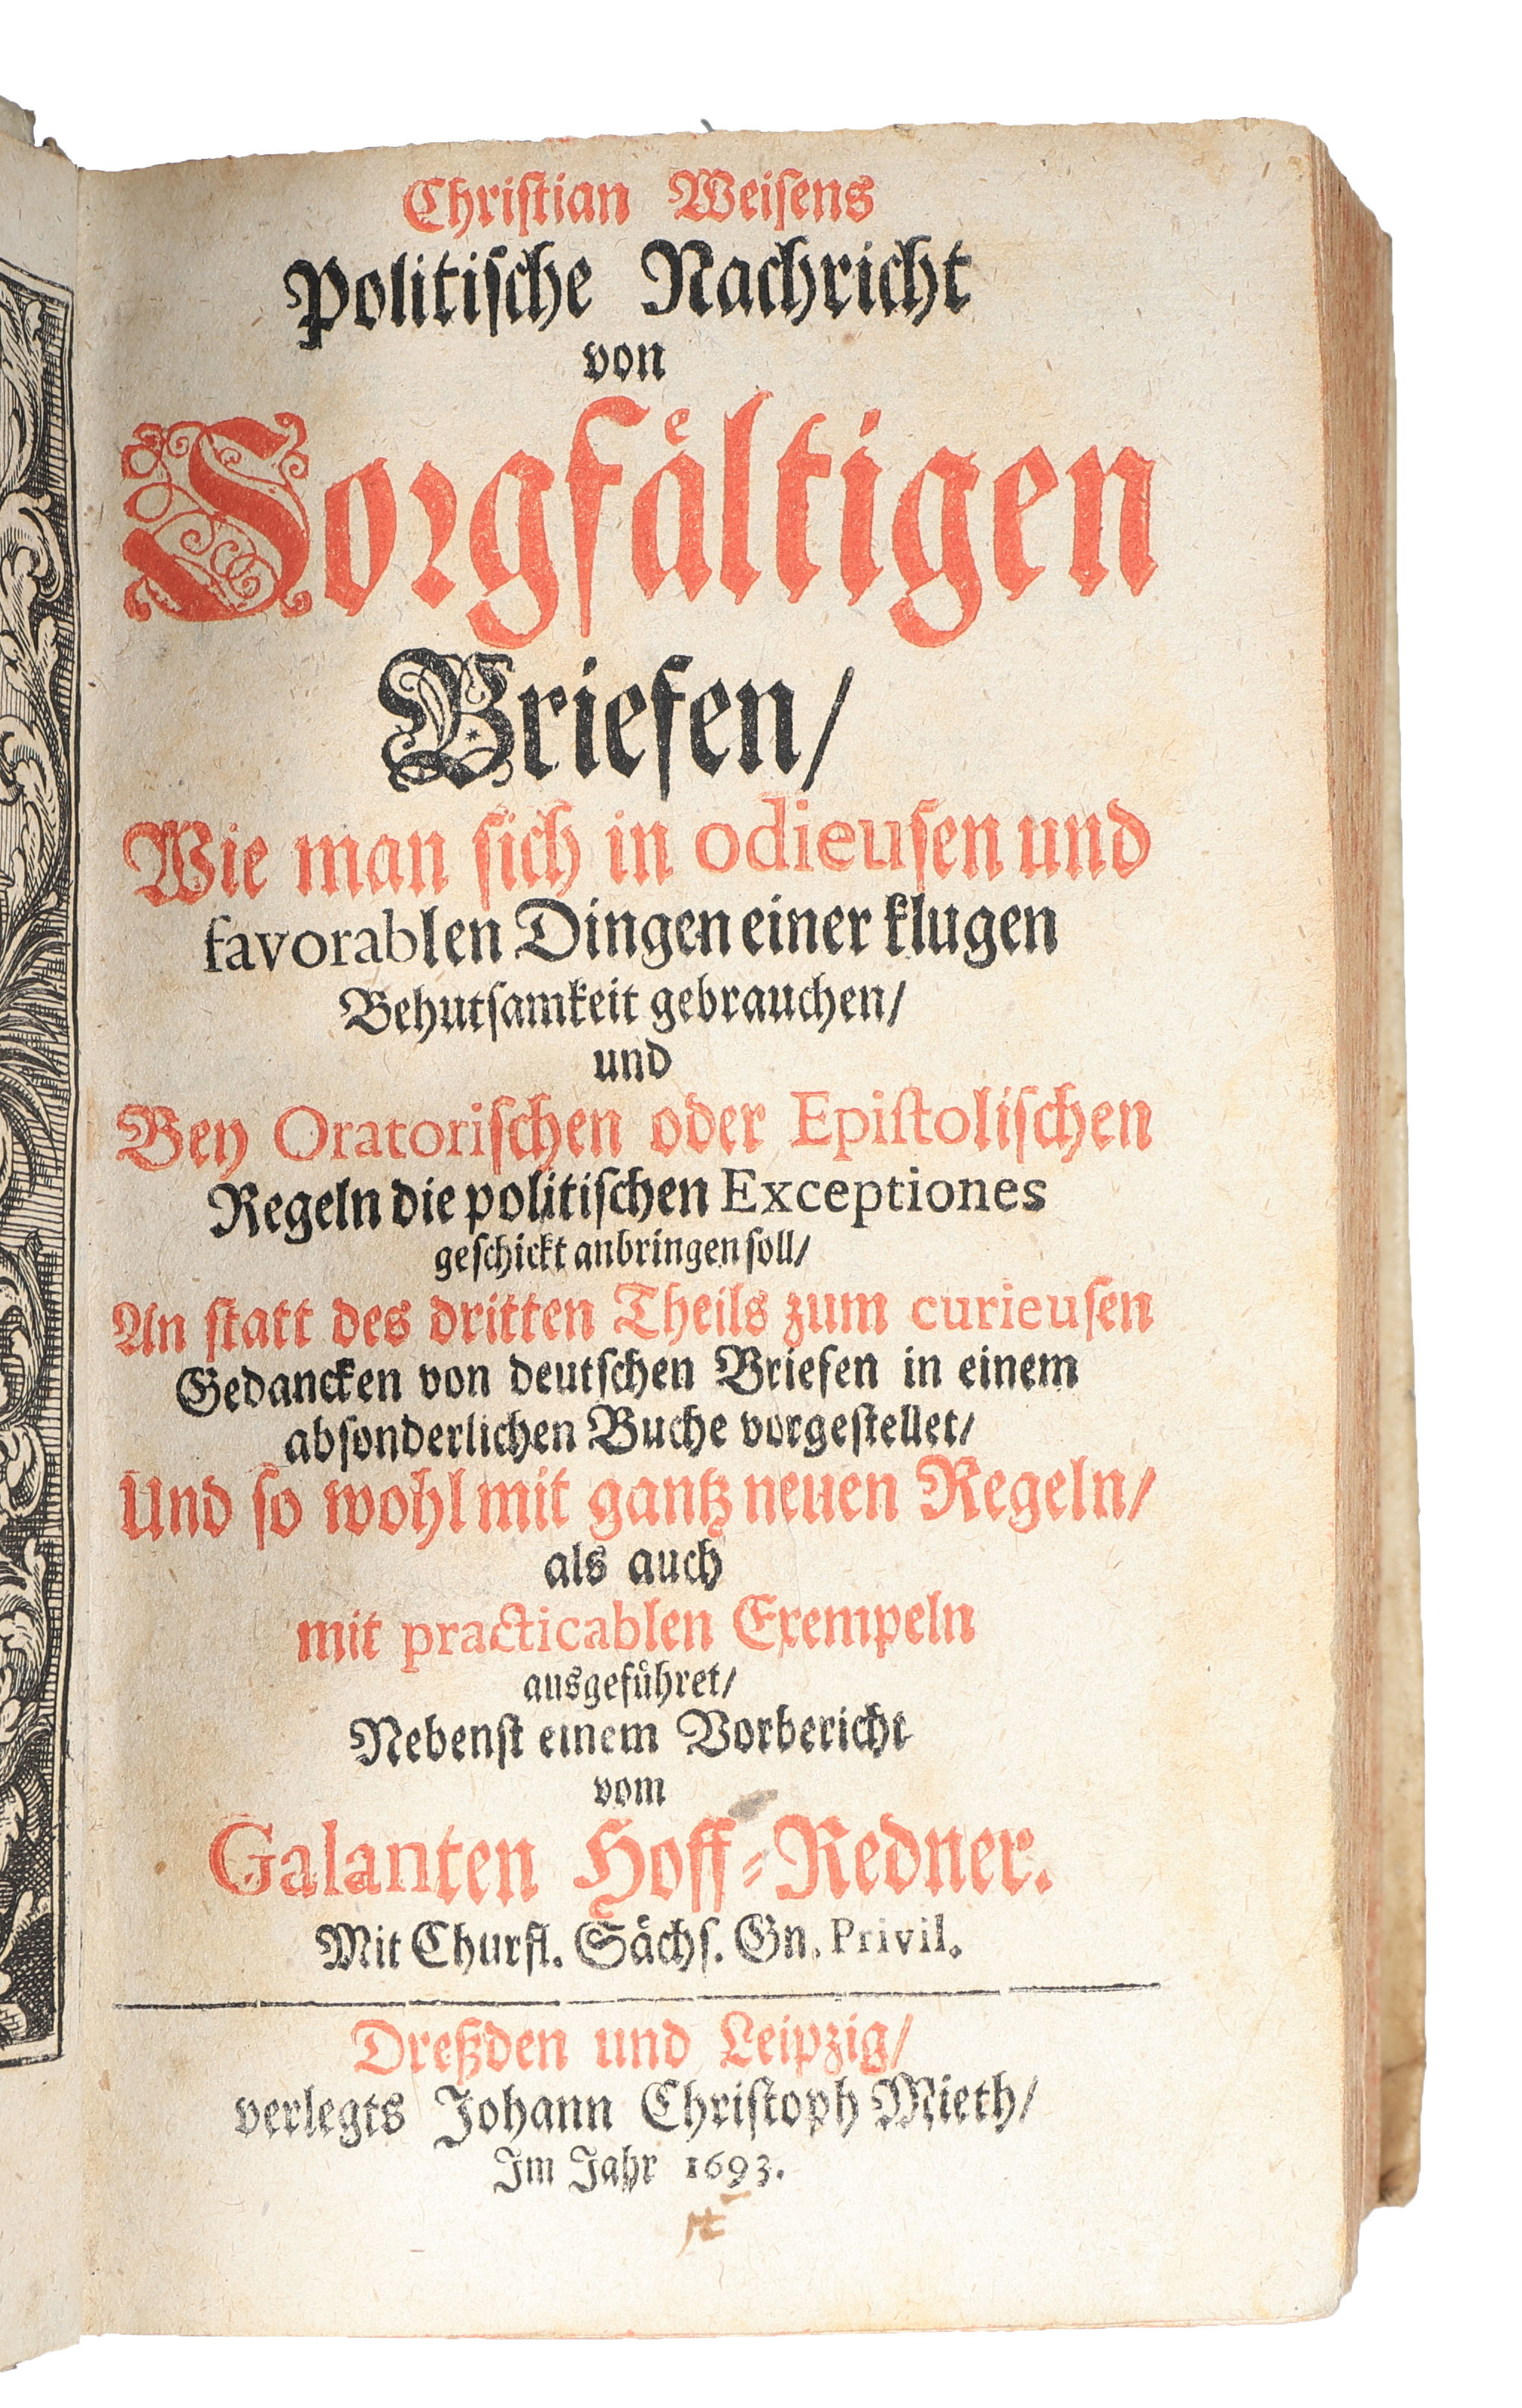 Chriſtian Weiſens
Politiſche Nachricht
von
Sorgfaͤltigen
Briefen/
Wie man ſich in odieuſen und
favorablen Dingen einer klugen
Behutſamkeit gebrauchen/
und
Bey Oratoriſchen oder Epiſtoliſchen
Regeln die politiſchen Exceptiones
geſchickt anbringen ſoll/
An ſtatt des dritten Theils zum curieuſen
Gedancken von deutſchen Briefen in einem
abſonderlichen Buche vorgeſtellet/
Und ſo wohl mit gantz neuen Regeln/
als auch
mit practicablen Exempeln
ausgefuͤhret/
Nebenſt einem Vorbericht
vom
Galanten Hoff-Redner.
Mit Churfl. Saͤchſ. Gn. Privil.
Dreßden und Leipzig/
verlegts Johann Chriſtoph Mieth/
Im Jahr 1693.